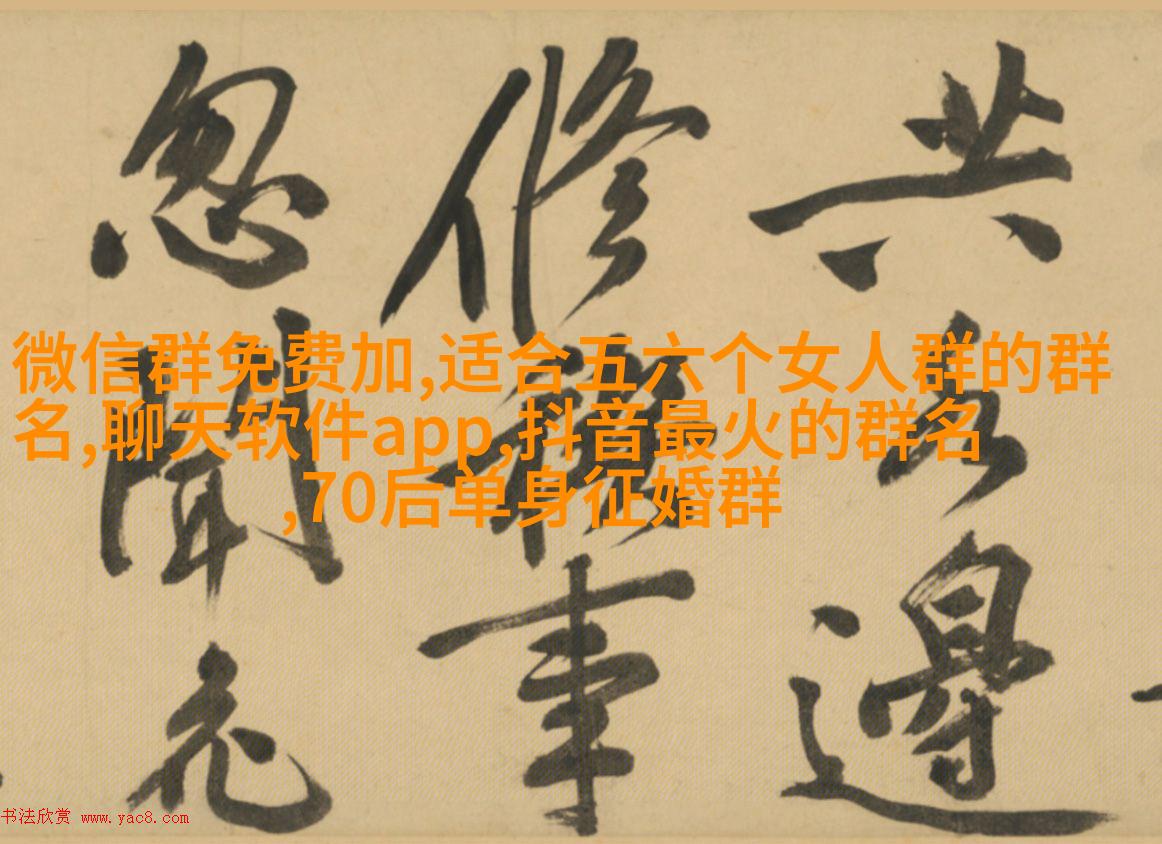 共邊
修禊事
忽聞
微信群免费加,适合五六个女人群的群
名,聊天软件app,抖音最火的群名
,70后单身征婚群
书法欣赏 www.yac8.com